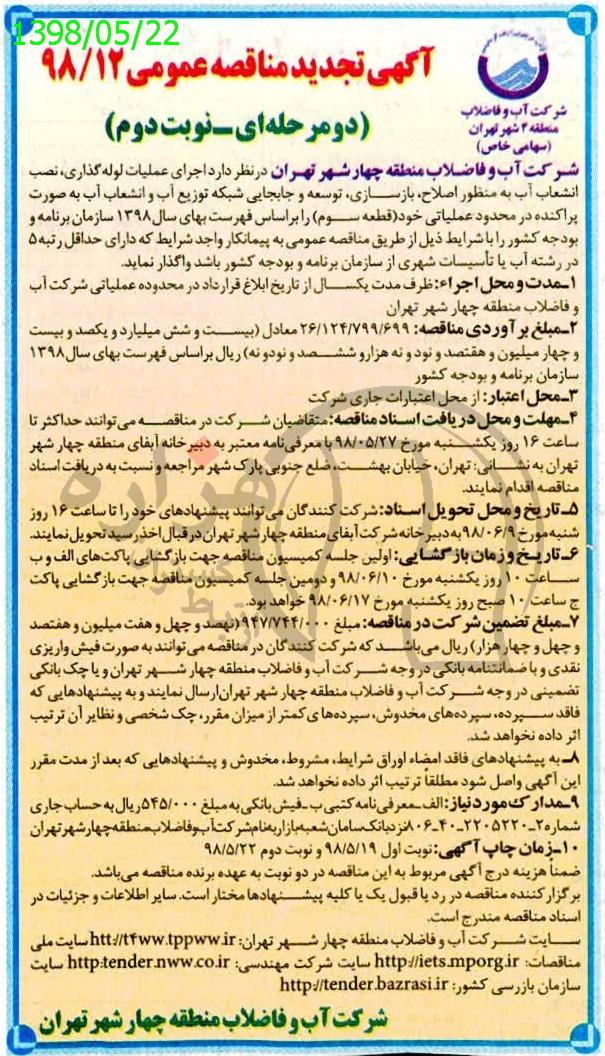 1398/05/22
آگهی تجدید مناقصه عمومی ۹۸/۱۲
(دو مرحله‌ای ـ نوبت دوم)
شرکت آب و فاضلاب
منطقه ۴ شهر تهران
(سهامی خاص)
شرکت آب و فاضلاب منطقه چهار شهر تهران در نظر دارد اجرای عملیات لوله‌گذاری، نصب
انشعاب آب به منظور اصلاح، بازسازی، توسعه و جابجایی شبکه توزیع آب و انشعاب آب به صورت
پراکنده در محدود عملیاتی خود (قطعه سوم) را براساس فهرست بهای سال ۱۳۹۸ سازمان برنامه و
بودجه کشور را با شرایط ذیل از طریق مناقصه عمومی به پیمانکار واجد شرایط که دارای حداقل رتبه ۵
در رشته آب یا تأسیسات شهری از سازمان برنامه و بودجه کشور باشد واگذار نماید.
۱ـ مدت و محل اجراء: ظرف مدت یکسال از تاریخ ابلاغ قرارداد در محدوده عملیاتی شرکت آب
و فاضلاب منطقه چهار شهر تهران
۲ـ مبلغ برآوردی مناقصه: ۲۶/۱۲۴/۷۹۹/۶۹۹ معادل (بیست و شش میلیارد و یکصد و بیست
و چهار میلیون و هفتصد و نود و نه هزار و ششصد و نود و نه) ریال براساس فهرست بهای سال ۱۳۹۸
سازمان برنامه و بودجه کشور
۳ـ محل اعتبار: از محل اعتبارات جاری شرکت
۴ـ مهلت و محل دریافت اسناد مناقصه: متقاضیان شرکت در مناقصه می‌توانند حداکثر تا
ساعت ۱۶ روز یکشنبه مورخ ۹۸/۰۵/۲۷ با معرفی‌نامه معتبر به دبیرخانه آبفای منطقه چهار شهر
تهران به نشانی: تهران، خیابان بهشت، ضلع جنوبی پارک شهر مراجعه و نسبت به دریافت اسناد
مناقصه اقدام نمایند.
۵ـ تاریخ و محل تحویل اسناد: شرکت کنندگان می‌توانند پیشنهادهای خود را تا ساعت ۱۶ روز
شنبه مورخ ۹۸/۰۶/۹ به دبیرخانه شرکت آبفای منطقه چهار شهر تهران در قبال اخذ رسید تحویل نمایند.
۶ـ تاریخ و زمان بازگشایی: اولین جلسه کمیسیون مناقصه جهت بازگشایی پاکت‌های الف و ب
ساعت ۱۰ روز یکشنبه مورخ ۹۸/۰۶/۱۰ و دومین جلسه کمیسیون مناقصه جهت بازگشایی پاکت
ج ساعت ۱۰ صبح روز یکشنبه مورخ ۹۸/۰۶/۱۷ خواهد بود.
۷ـ مبلغ تضمین شرکت در مناقصه: مبلغ ۹۴۷/۷۴۴/۰۰۰ (نهصد و چهل و هفت میلیون و هفتصد
و چهل و چهار هزار) ریال می‌باشد که شرکت کنندگان در مناقصه می‌توانند به صورت فیش واریزی
نقدی و یا ضمانتنامه بانکی در وجه شرکت آب و فاضلاب منطقه چهار شهر تهران و یا چک بانکی
تضمینی در وجه شرکت آب و فاضلاب منطقه چهار شهر تهران ارسال نمایند و به پیشنهادهایی که
فاقد سپرده، سپرده‌های مخدوش، سپرده‌های کمتر از میزان مقرر، چک شخصی و نظایر آن ترتیب
اثر داده نخواهد شد.
۸ـ به پیشنهادهای فاقد امضاء اوراق شرایط، مشروط، مخدوش و پیشنهادهایی که بعد از مدت مقرر
این آگهی واصل شود مطلقاً ترتیب اثر داده نخواهد شد.
۹ـ مدارک مورد نیاز: الف ـ معرفی نامه کتبی ب ـ فیش بانکی به مبلغ ۵۴۵/۰۰۰ ریال به حساب جاری
شماره ۲ـ۲۲۰۵۲۲۰ـ۴۰ـ۸۰۶ نزد بانک سامان شعبه بازار به نام شرکت آب و فاضلاب منطقه چهار شهر تهران
۱۰ـ زمان چاپ آگهی: نوبت اول ۹۸/۵/۱۹ و نوبت دوم ۹۸/۵/۲۲
ضمناً هزینه درج آگهی مربوط به این مناقصه در دو نوبت به عهده برنده مناقصه می‌باشد.
برگزارکننده مناقصه در رد یا قبول یک یا کلیه پیشنهادها مختار است. سایر اطلاعات و جزئیات در
اسناد مناقصه مندرج است.
سایت شرکت آب و فاضلاب منطقه چهار شهر تهران: htt://t4ww.tppww.ir سایت ملی
مناقصات: http://iets.mporg.ir سایت شرکت مهندسی: http:tender.nww.co.ir سایت
سازمان بازرسی کشور: http://tender.bazrasi.ir
شرکت آب و فاضلاب منطقه چهار شهر تهران